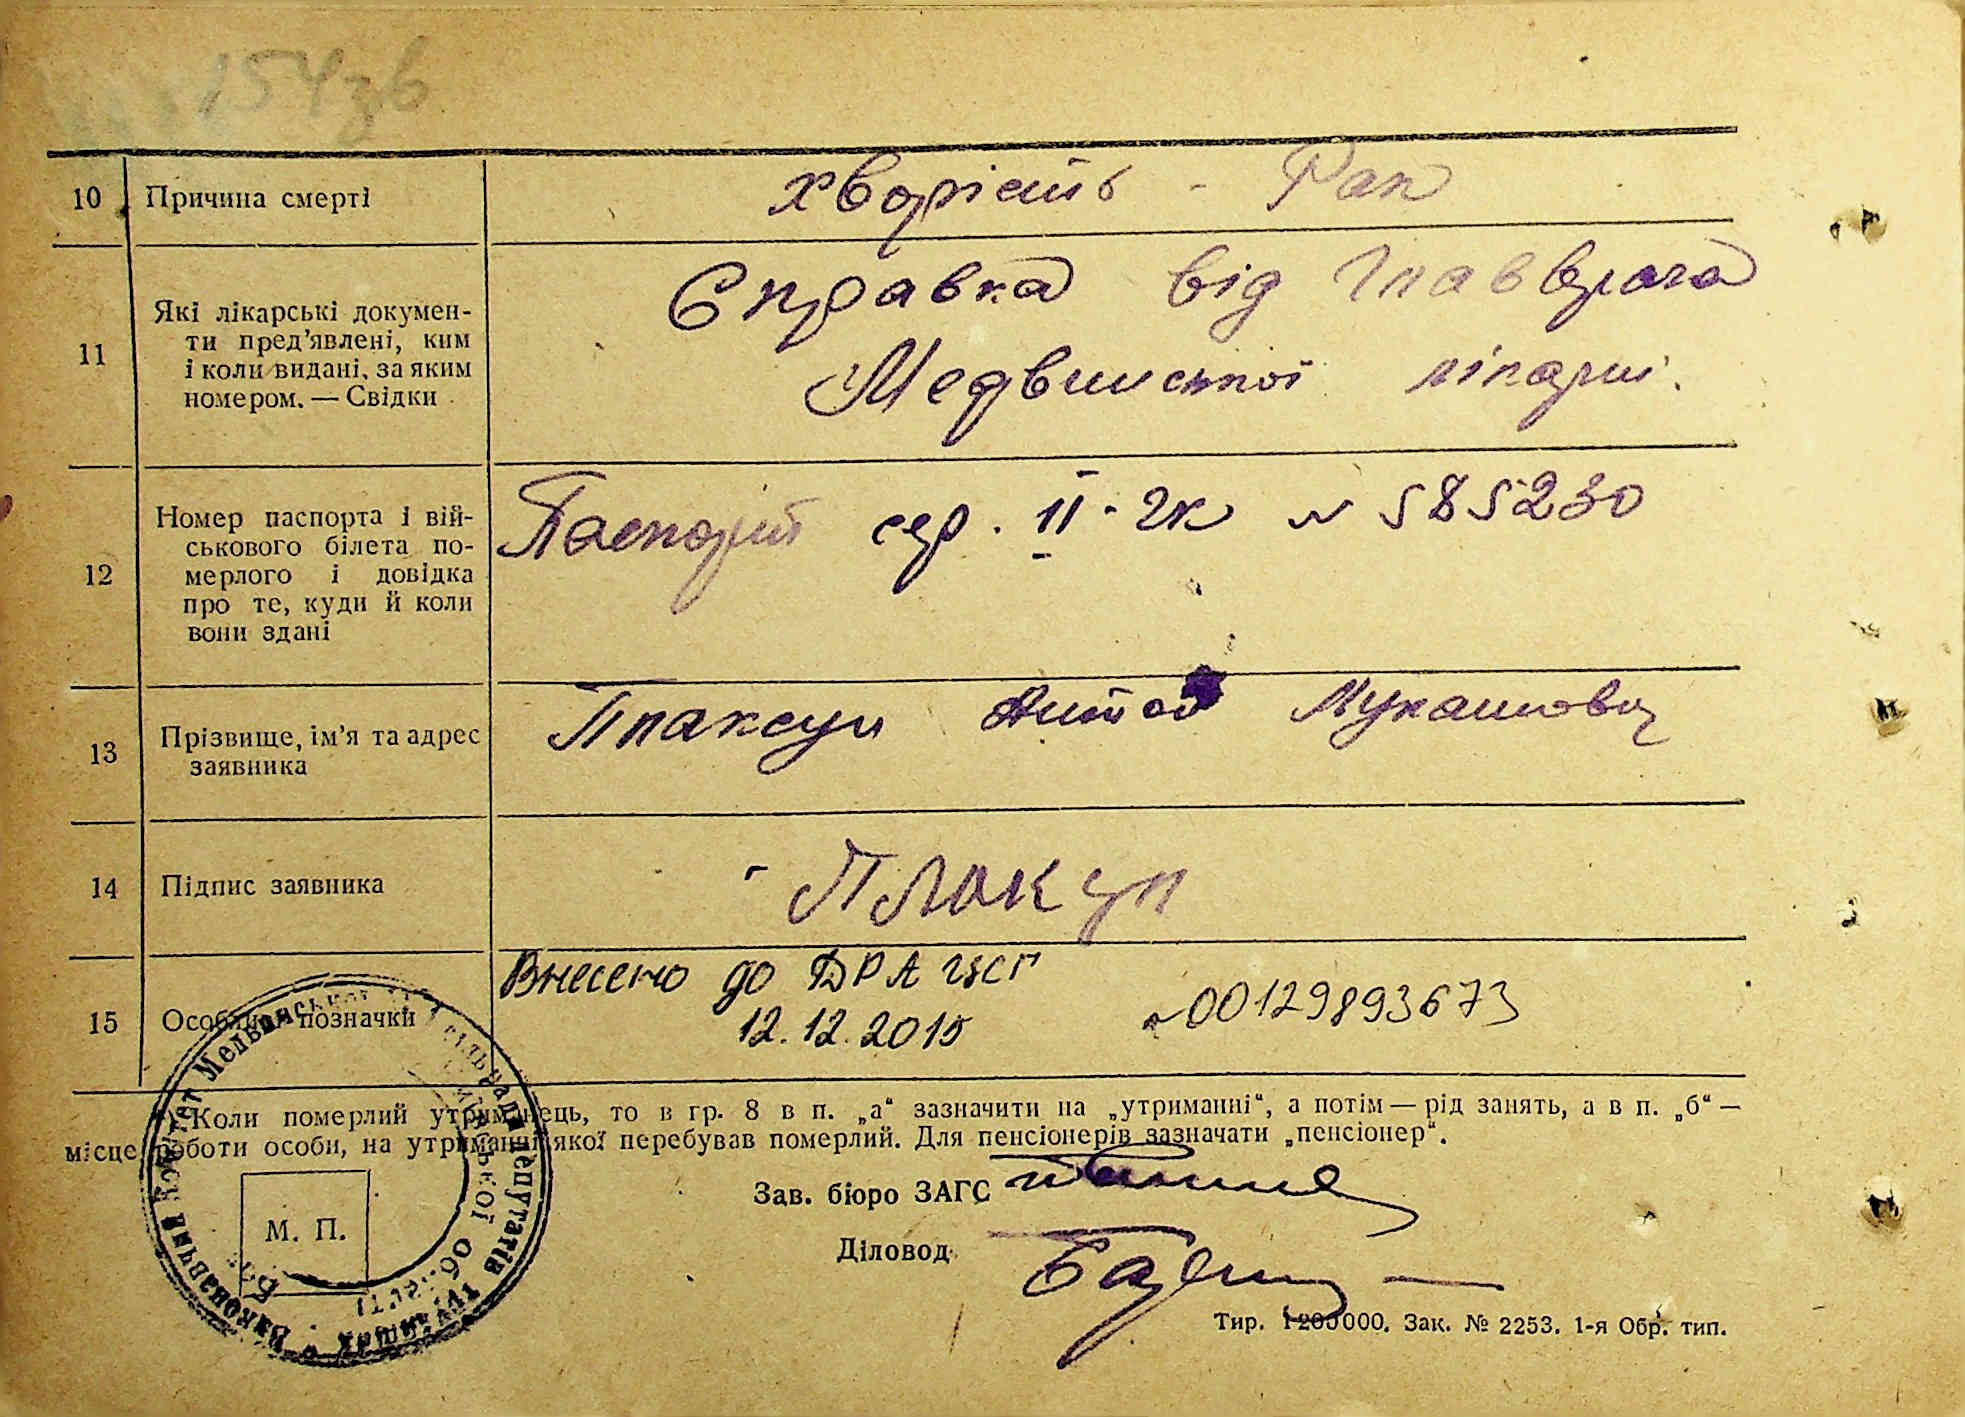 154зв
10 Причина смерті хворість - Рак
11 Які лікарські докумен-
ти пред’явлені, ким
і коли видані, за яким
номером. — Свідки
Справка від Главврача
Медвинської лікарні.
12 Номер паспорта і вій-
ськового білета по-
мерлого і довідка
про те, куди й коли
вони здані
Паспорт сер. II-ГК N 585230
13 Прізвище, ім’я та адрес
заявника
Плаксун Антон Лукашович
14 Підпис заявника
Плакун
15 Особливі позначки
Внесено до ДРА ЦСГ
12.12.2015 N00129893673
*) Коли померлий утриманець, то в гр. 8 в п. „а“ зазначити на „утриманні“, а потім — рід занять, а в п. „б“ —
місце роботи особи, на утриманні якої перебував померлий. Для пенсіонерів зазначати „пенсіонер“.
Зав. бюро ЗАГС
М. П.
Діловод
Виконавчий Комітет Медвинської сільради депутатів трудящих
Київської області
Тир. 1200000. Зак. № 2253. 1-я Обр. тип.